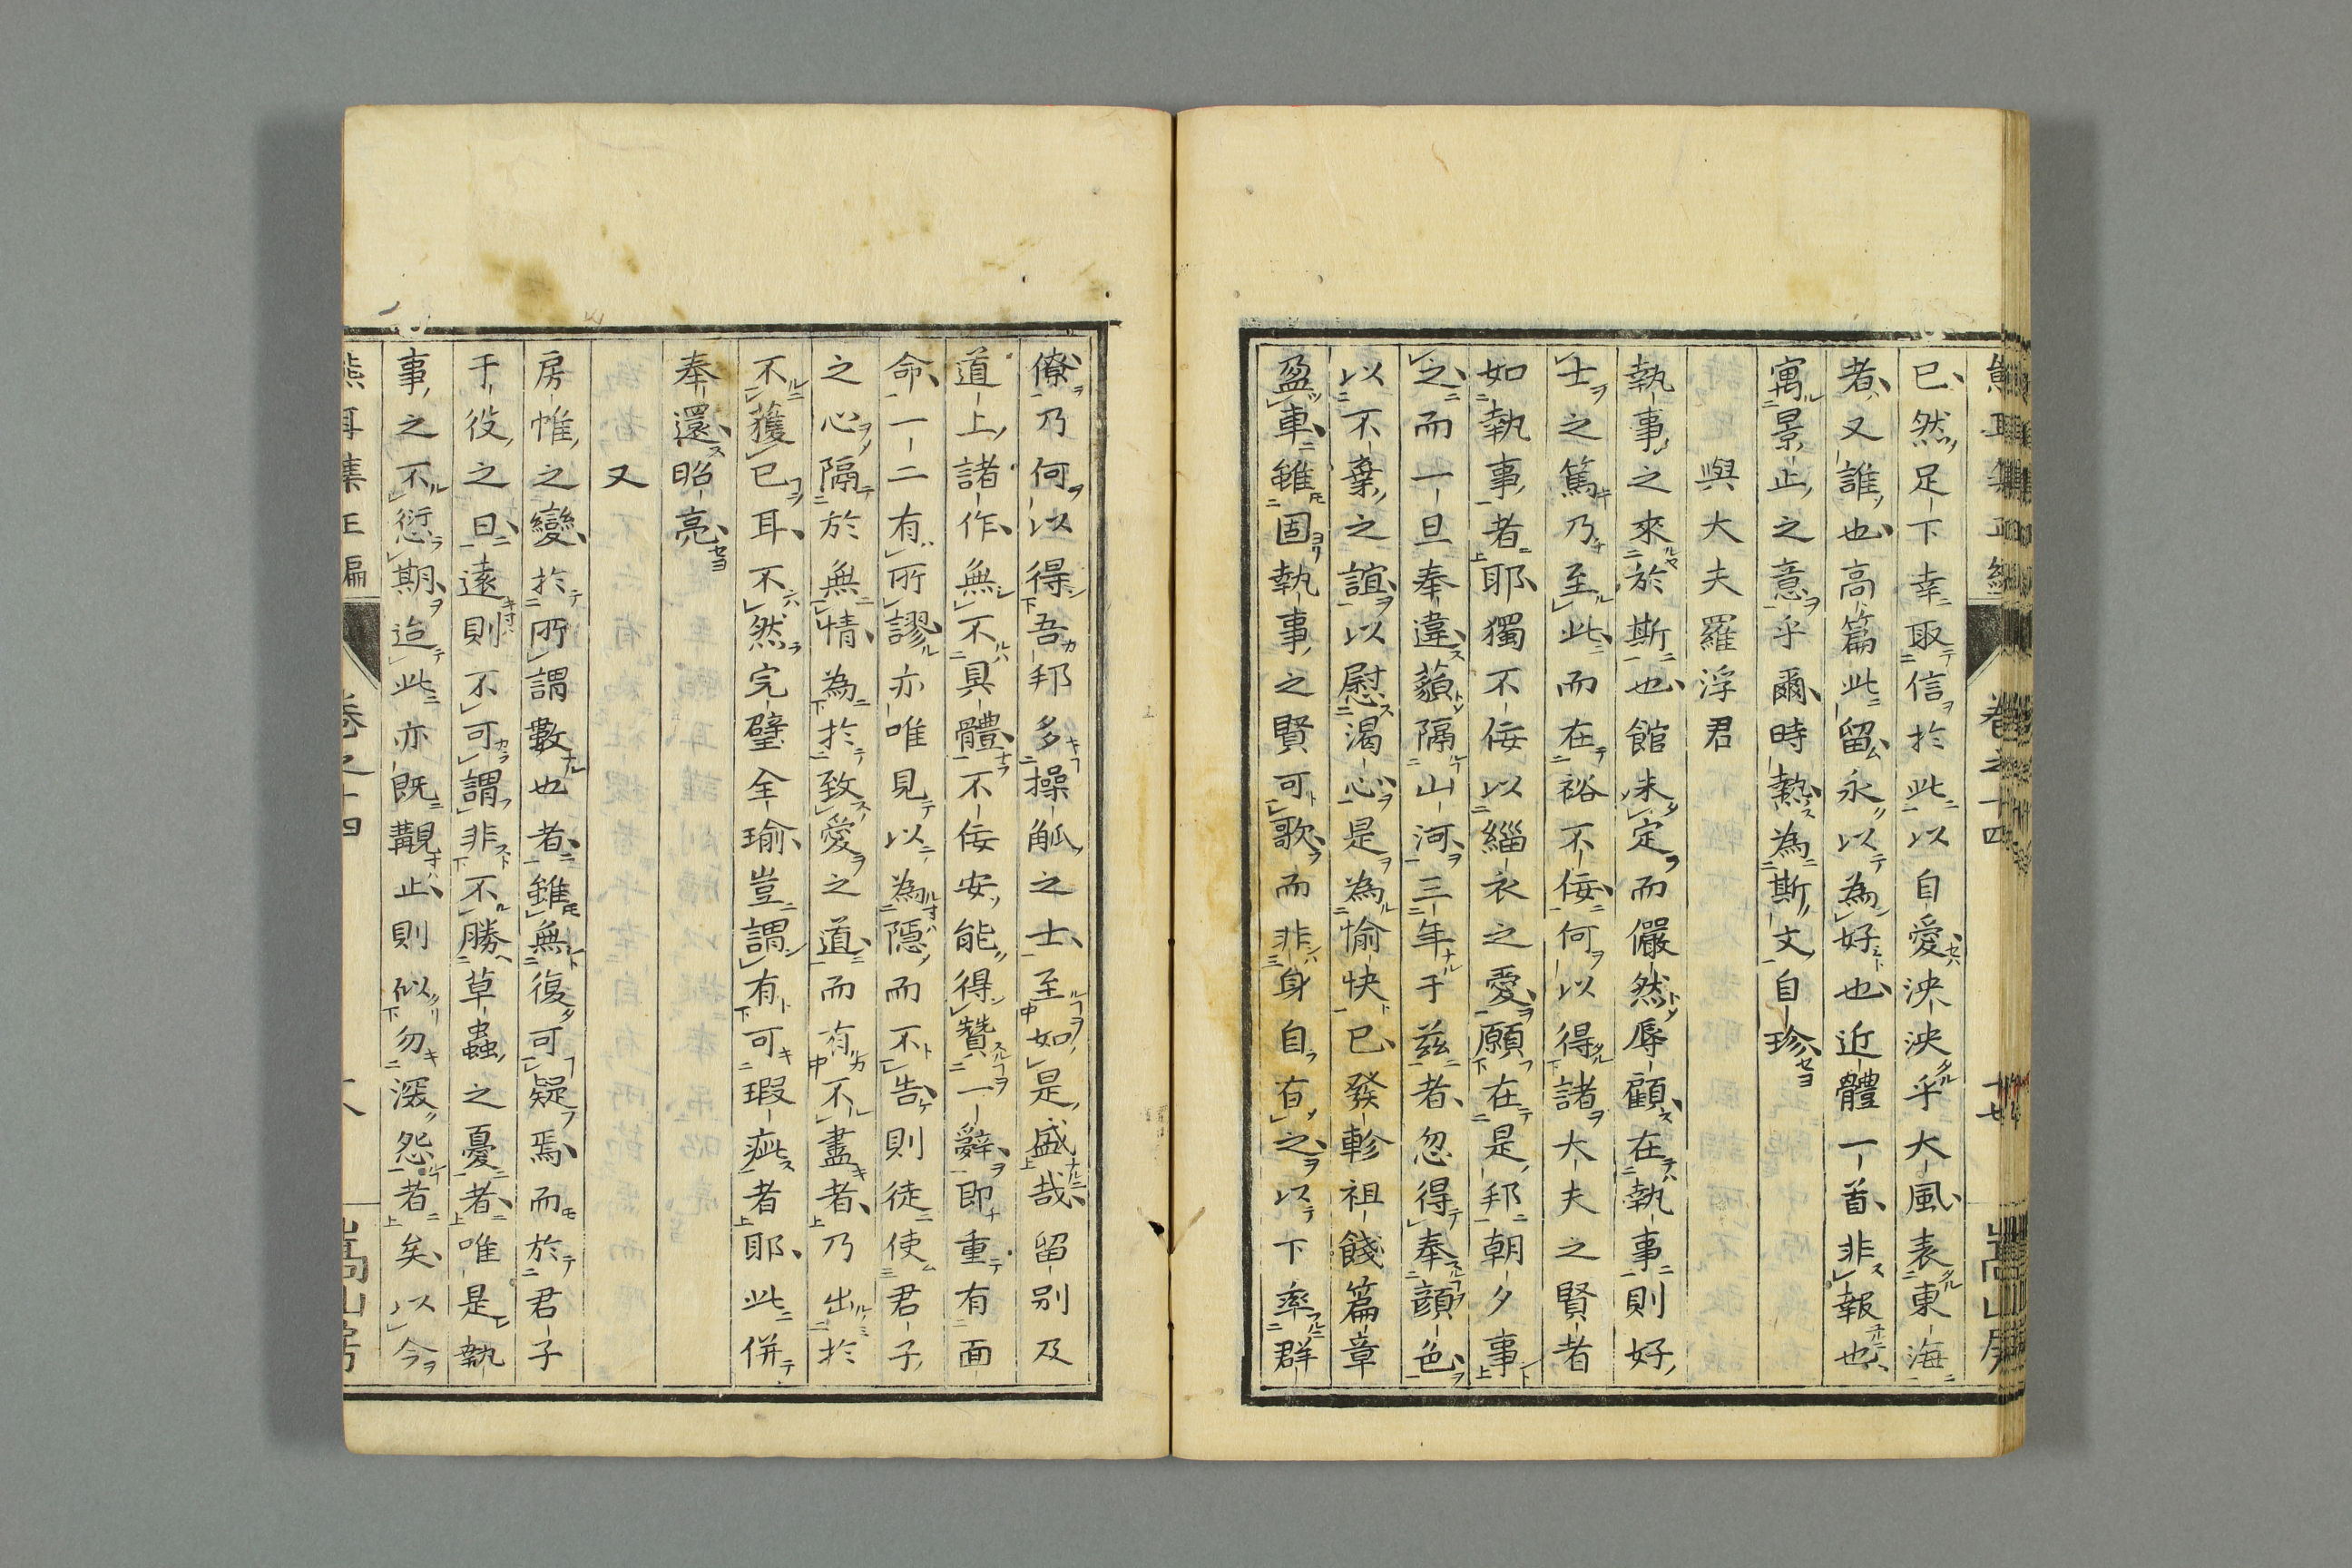 已然足下幸取信於此以自愛泱泱乎大風表東海
者又誰也高篇此留永以為好也近體一首非報也
寓景止之意乎爾時熱為斯文自珍
與大夫羅浮君
執事之來於斯也館未定而儼然辱顧在執事則好
士之篤乃至此而在裕不佞何以得諸大夫之賢者
如執事者耶獨不佞以緇衣之愛願在是邦朝夕事
之而一旦奉違藐隔山河三年于茲者忽得奉顏色
以不棄之誼以慰渴心是為愉快已發軫祖餞篇章
盈車雖固執事之賢可歌而非身自有之以下率群
僚乃何以得吾邦多操觚之士至如是盛哉留別及
道上諸作無不具體不佞安能得贊一辭即重有面
命一二有所謬亦唯見以為隱而不告則徒使君子
之心隔於無情為於致愛之道而有不盡者乃出於
不獲已耳不然完璧全瑜豈謂有可瑕疵者耶此併
奉還昭亮
又
房帷之變於所謂數也者雖無復可疑焉而於君子
于役之曰遠則不可謂非不勝草蟲之憂者唯是執
事之不愆期迨此亦既覯止則似勿深怨者矣以今
熊耳集正編 卷之十四 嵩山房